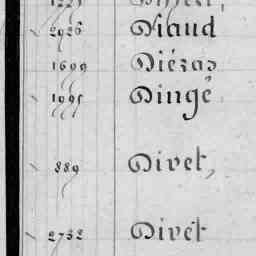 2926 Diaud
1699 Diézas
1095 Dingé
889 Divet,
2732 Divét